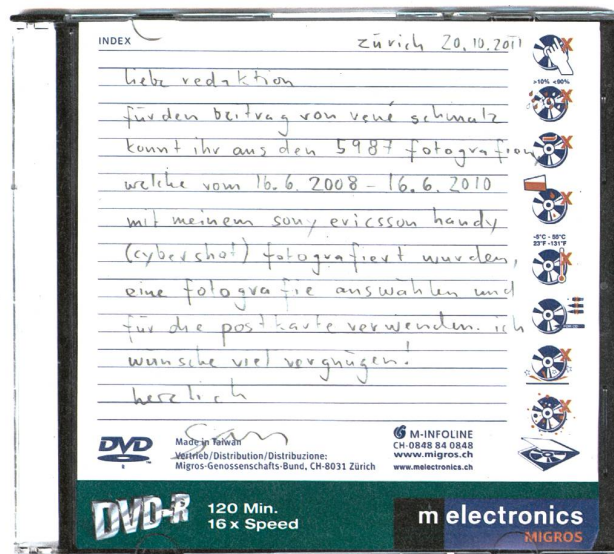 INDEX
zürich 20.10.2011
liebe redaktion
für den beitrag von rené schmalz
könnt ihr aus den 5987 fotografien
welche vom 16.6.2008 – 16.6.2010
mit meinem sony ericsson handy
(cybershot) fotografiert wurden,
eine fotografie auswählen und
für die postkarte verwenden. ich
wünsche viel vergnügen!
herzlich
>10% <90%
-5°C - 55°C
23°F -131°F
DVD
R
Made in Taiwan
Vertrieb/Distribution/Distribuzione:
Migros-Genossenschafts-Bund, CH-8031 Zürich
M-INFOLINE
CH-0848 84 0848
www.migros.ch
www.melectronics.ch
DVD-R
120 Min.
16 x Speed
m electronics
MIGROS